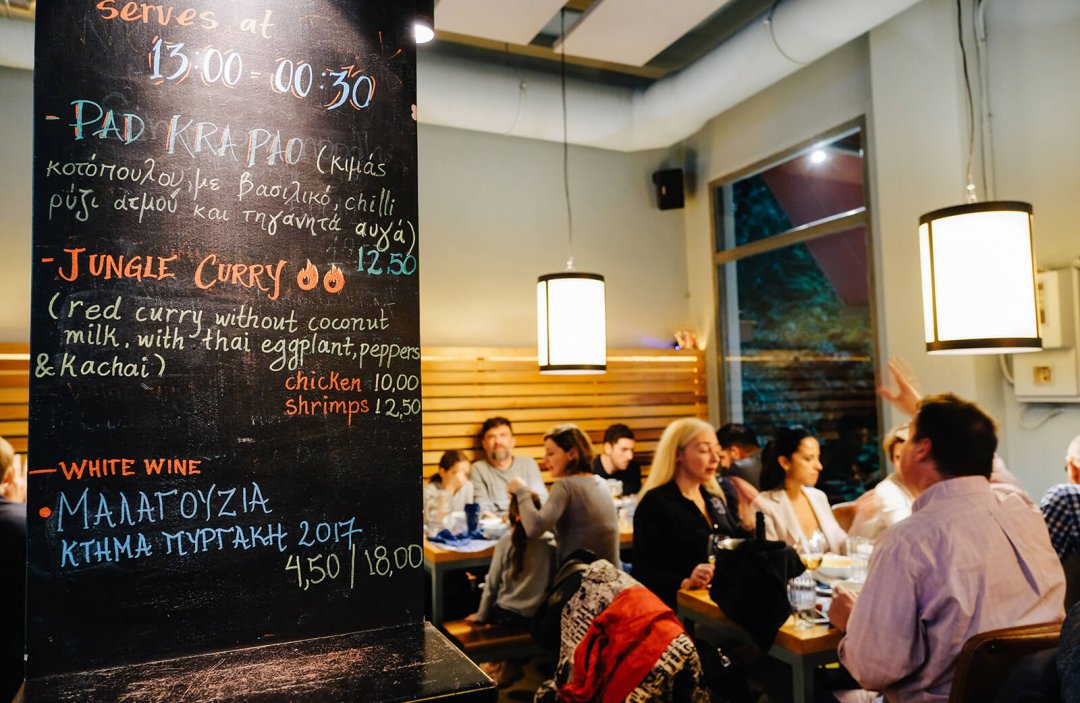 serves at
13:00 - 00:30
- PAD KRA PAO (κιμάς
κοτόπουλου, με βασιλικό, chilli
ρύζι ατμού και τηγανητά αυγά)
12,50
- JUNGLE CURRY
(red curry without coconut
milk, with thai eggplant, peppers
& Kachai)
chicken 10,00
shrimps 12,50
— WHITE WINE
• ΜΑΛΑΓΟΥΖΙΑ
ΚΤΗΜΑ ΠΥΡΓΑΚΗ 2017
4,50 / 18,00